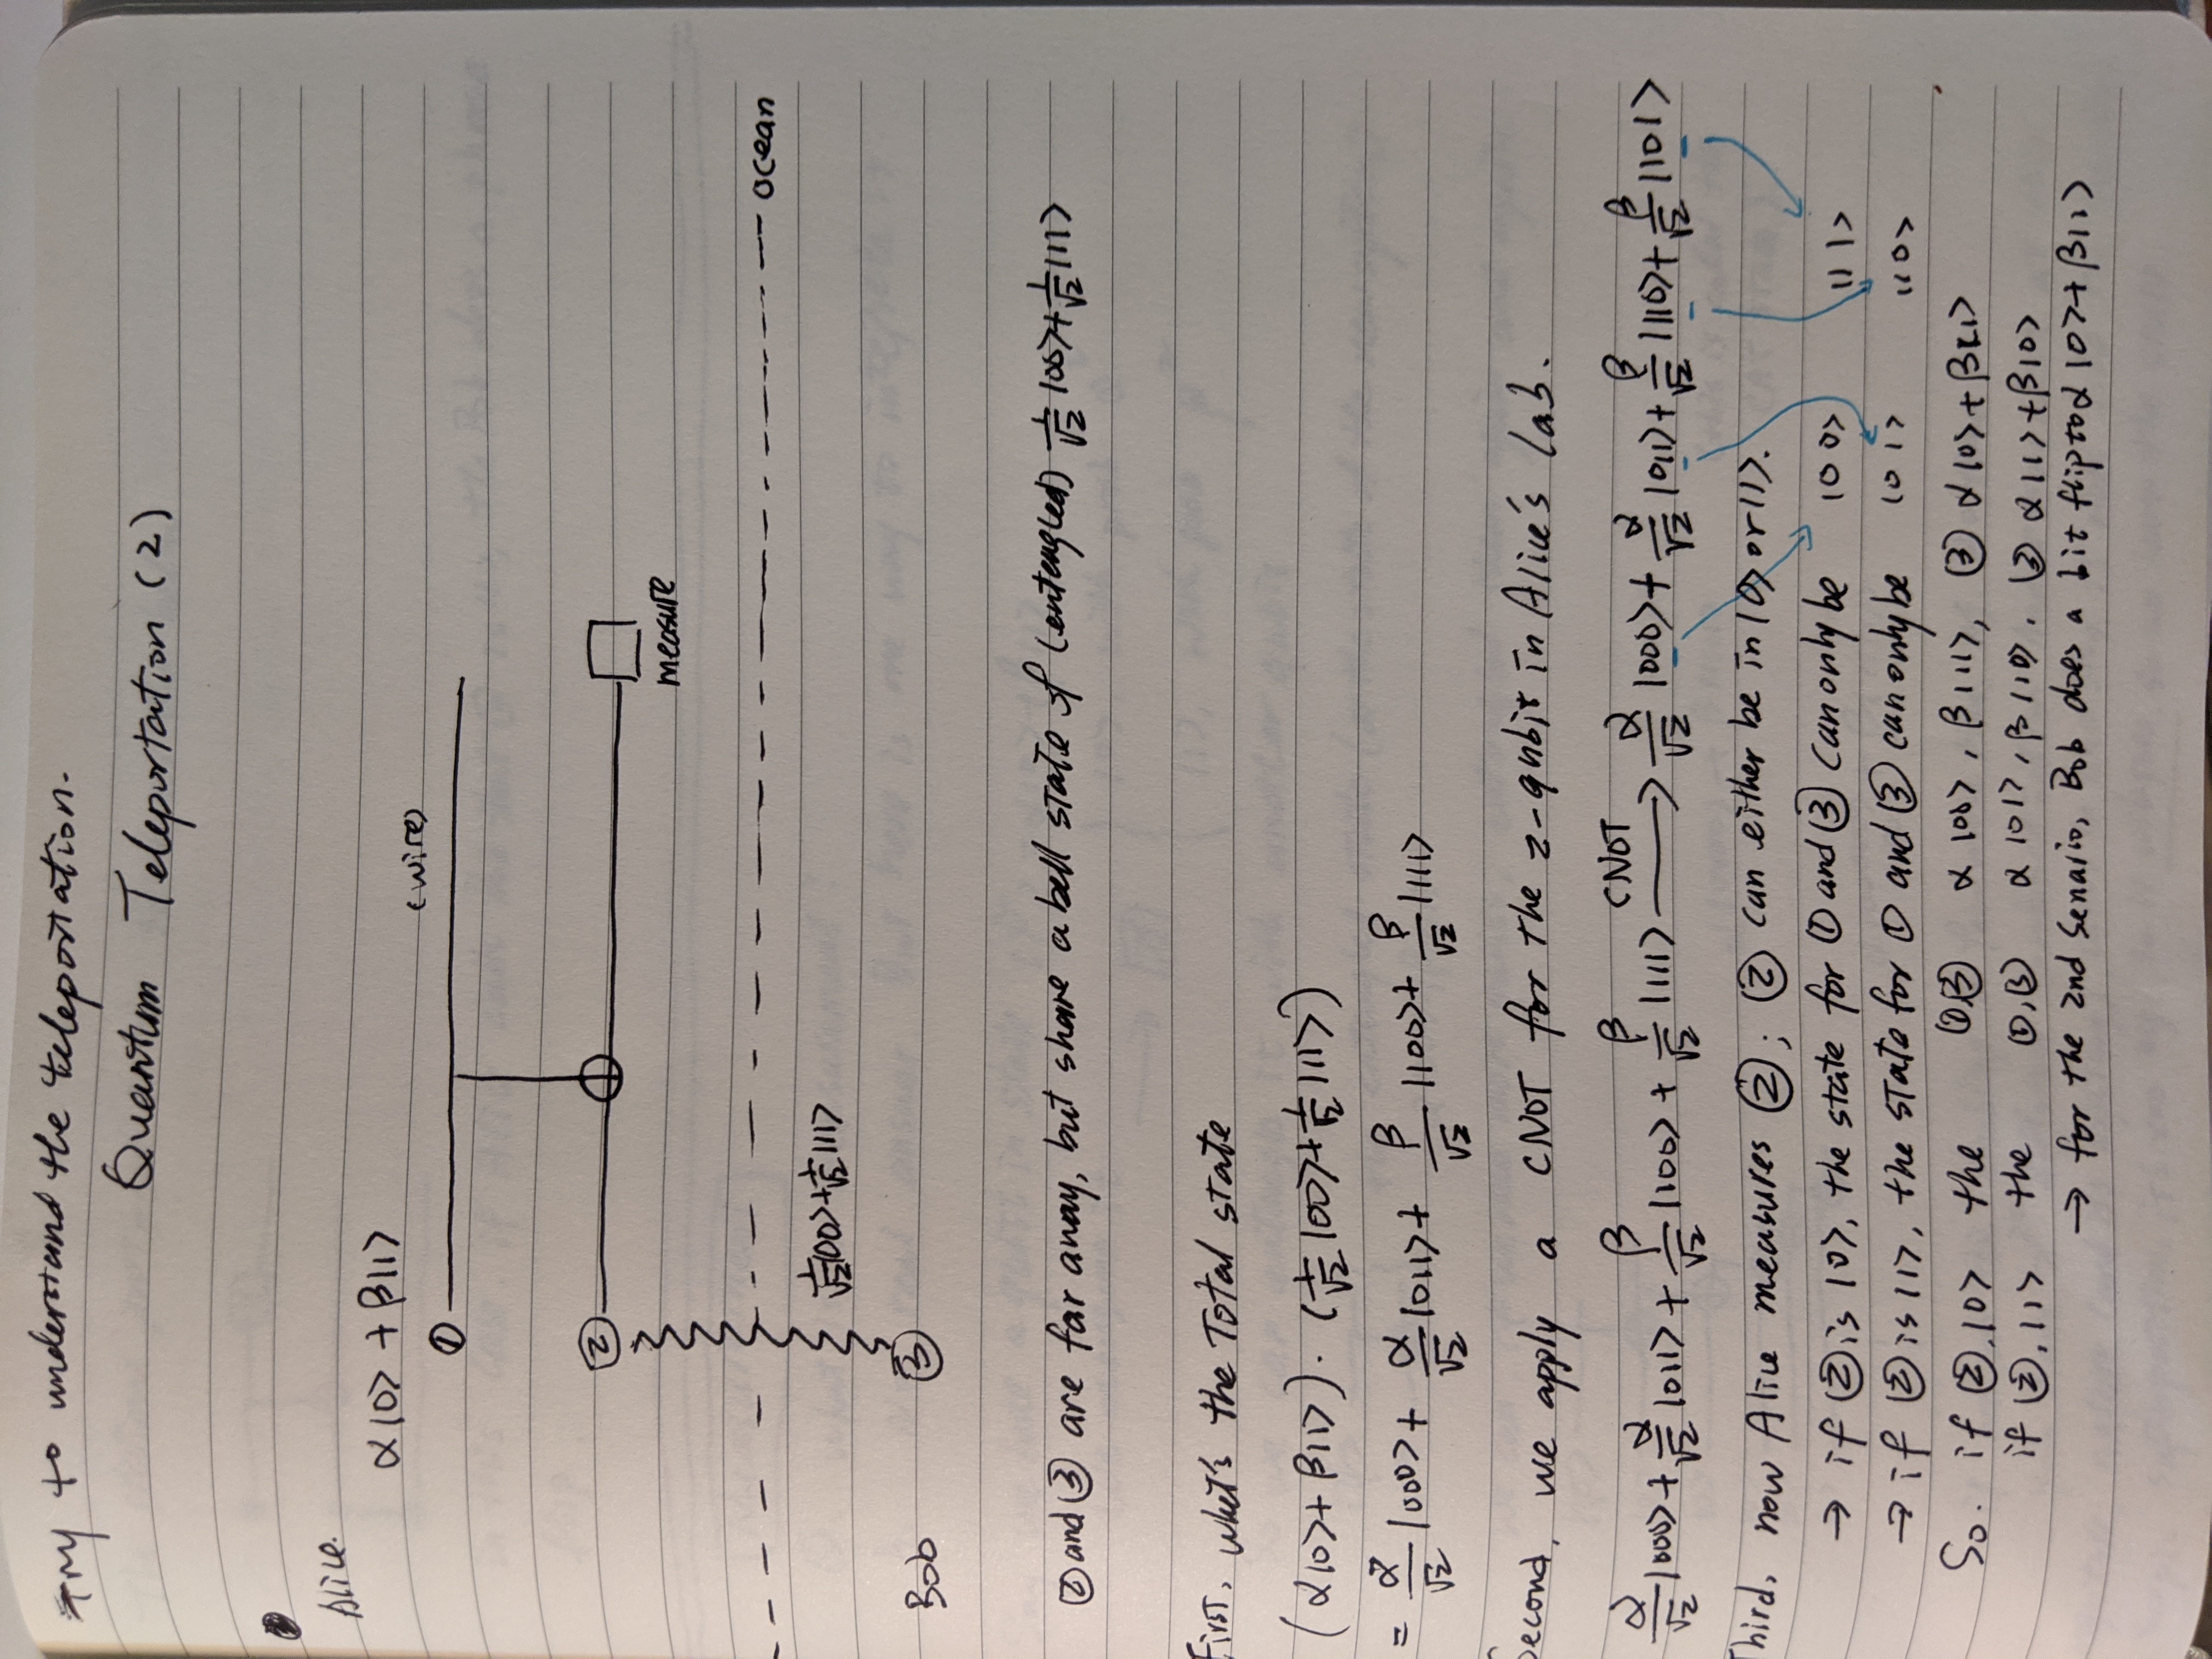 Try to understand the teleportation.
Quantum Teleportation (2)
Alice.
α|0> + β|1>
(wire)
①
②
measure
ocean
1/√2|00>+1/√2|11>
Bob
③
② and ③ are far away, but share a bell state of (entangled) 1/√2|00>+1/√2|11>
First. what's the Total state
(α|0>+β|1>)·(1/√2|00>+1/√2|11>)
= α/√2|000> + α/√2|011> + β/√2|100> + β/√2|111>
Second, we apply a CNOT for the 2-qubit in Alice's lab.
α/√2|000> + α/√2|011> + β/√2|100> + β/√2|111> CNOT → α/√2|000> + α/√2|011> + β/√2|110> + β/√2|101>
Third. now Alice measures ②; ② can either be in |0> or |1>.
→ if ② is |0>, the state for ① and ③ can only be |00> |11>
→ if ② is |1>, the state for ① and ③ can only be |01> |10>
So. if ②,|0> the ①,③ α|00>, β|11>, ③ α|0>+β|1>
if ②,|1> the ①,③ α|01>, β|10>. ③ α|1>+β|0>
→ for the 2nd senaio, Bob does a bit flip to α|0>+β|1>